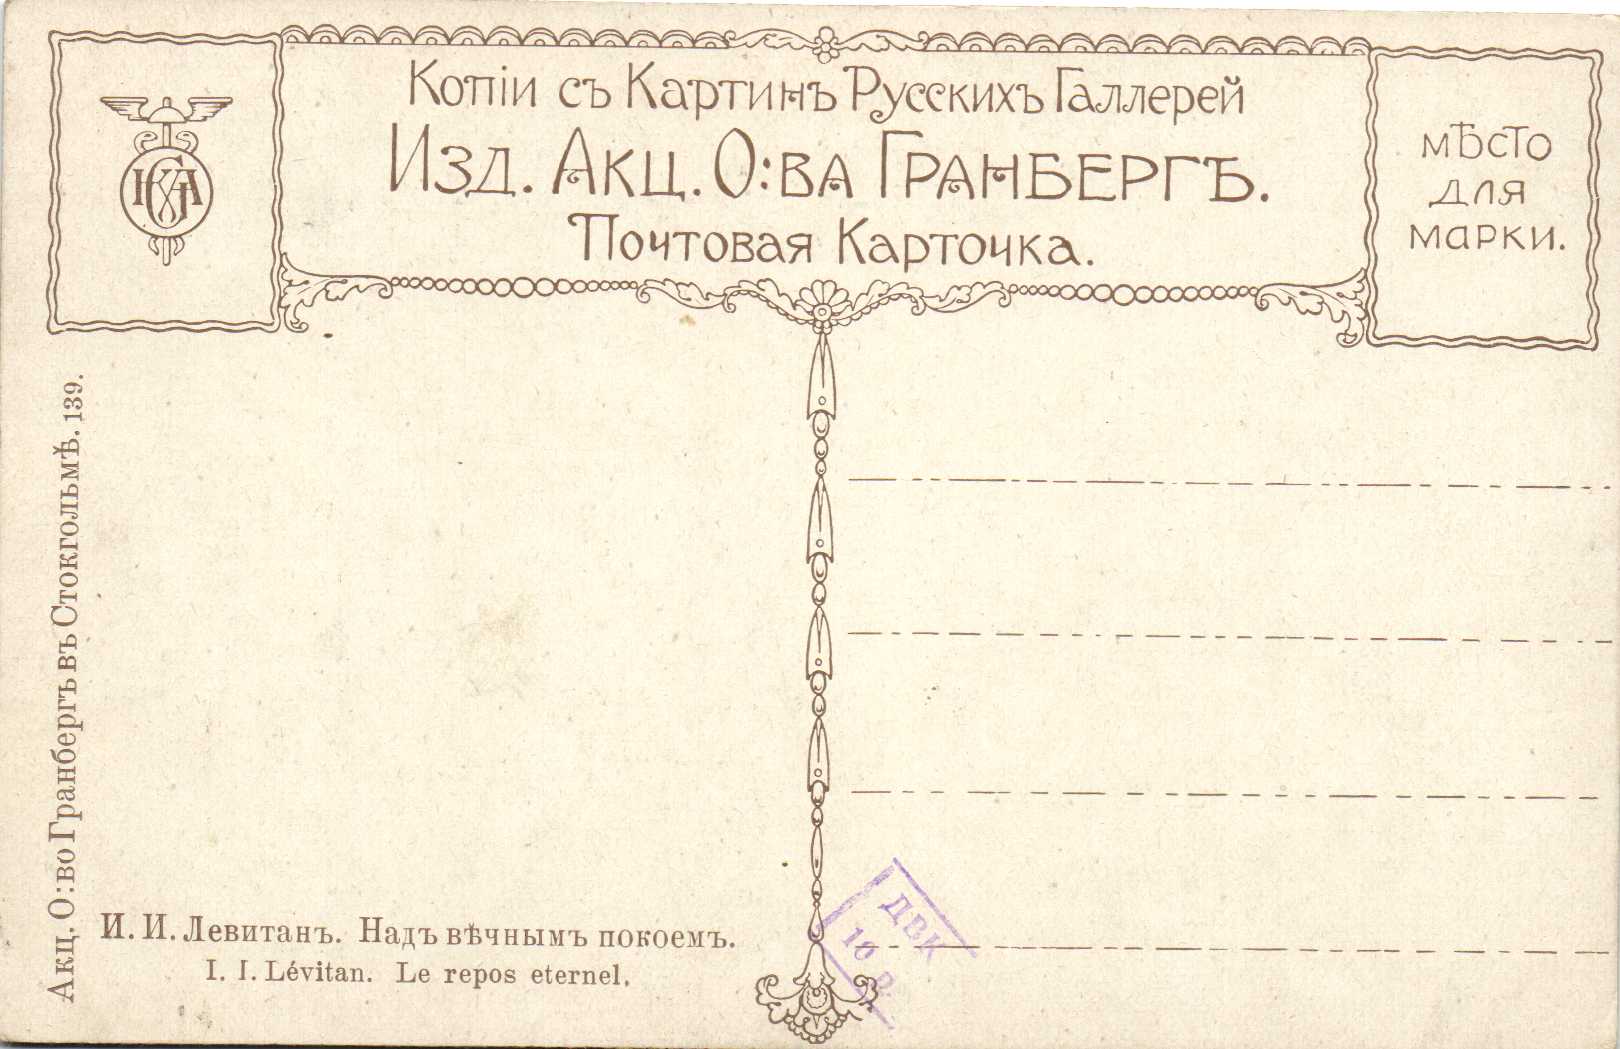 Копіи съ Картинъ Русскихъ Галлерей
Изд. Акц. О:ва Гранбергъ.
Почтовая Карточка.
мѣсто
для
марки.
Акц. О:во Гранбергъ въ Стокгольмѣ. 139.
И. И. Левитанъ. Надъ вѣчнымъ покоемъ.
I. I. Lévitan. Le repos eternel.
ДВК
10 р.